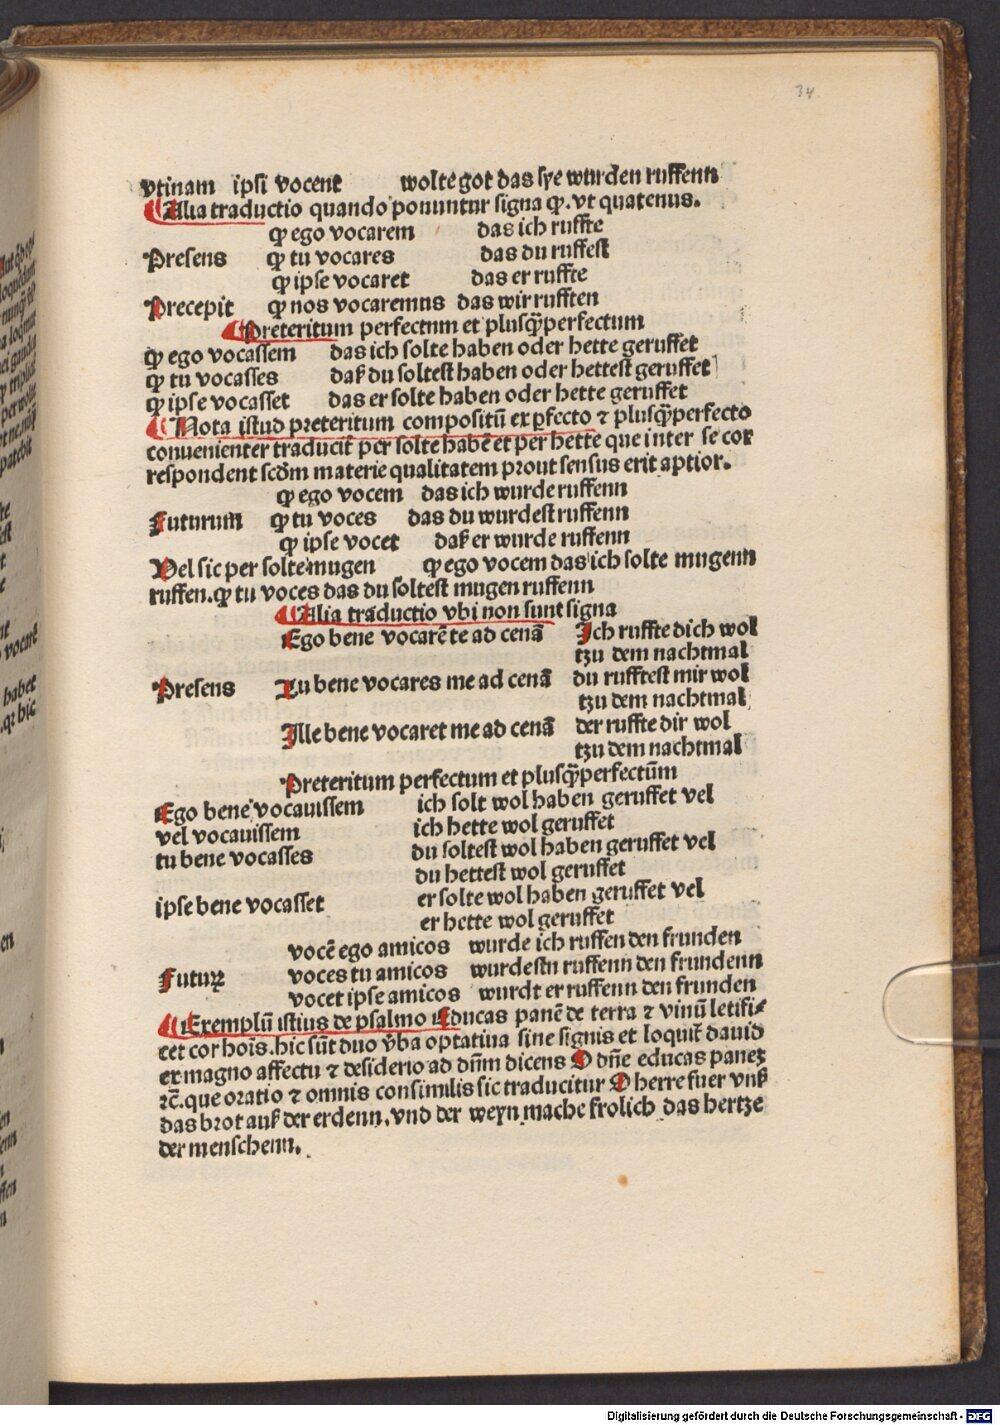 34.
vtinam ipsi vocent wolte got das sye wurden ruffenn
¶ Alia traductio quando ponuntur signa ꝙ. vt quatenus.
ꝙ ego vocarem das ich ruffte
Presens ꝙ tu vocares das du ruffest
ꝙ ipse vocaret das er ruffte
Precepit ꝙ nos vocaremus das wir rufften
¶ Preteritum perfectum et plusq̃perfectum
ꝙ ego vocassem das ich solte haben oder hette geruffet
ꝙ tu vocasses daß du soltest haben oder hettest geruffet
ꝙ ipse vocasset das er solte haben oder hette geruffet
¶ Nota istud preteritum compositũ ex ꝑfecto ⁊ plusq̃perfecto
conuenienter traducit̃ per solte habẽ et per hette que inter se cor
respondent scd̃m materie qualitatem prout sensus erit aptior.
ꝙ ego vocem das ich wurde ruffenn
Futurum ꝙ tu voces das du wurdest ruffenn
ꝙ ipse vocet daß er wurde ruffenn
Vel sic per solte mugen ꝙ ego vocem das ich solte mugenn
ruffen. ꝙ tu voces das du soltest mugen ruffenn
¶ Alia traductio vbi non sunt signa
Ego bene vocarẽ te ad cenã Ich ruffte dich wol
tzu dem nachtmal
Presens Tu bene vocares me ad cenã du rufftest mir wol
tzu dem nachtmal
Ille bene vocaret me ad cenã der ruffte dir wol
tzu dem nachtmal
Preteritum perfectum et plusq̃perfectũm
Ego bene vocauissem ich solt wol haben geruffet vel
vel vocauissem ich hette wol geruffet
tu bene vocasses du soltest wol haben geruffet vel
du hettest wol geruffet
ipse bene vocasset er solte wol haben geruffet vel
er hette wol geruffet
vocẽ ego amicos wurde ich ruffen den frunden
Futuꝝ voces tu amicos wurdestu ruffenn den frundenn
vocet ipse amicos wurdt er ruffenn den frunden
¶ Exemplũ istius de psalmo Educas panẽ de terra ⁊ vinũ letifi⸗
cet cor hoĩs. hic sũt duo v̾ba optatiua sine signis et loquit̃ dauid
ex magno affectu ⁊ desiderio ad dñm dicens O dñe educas panez
⁊c̃. que oratio ⁊ omnis consimilis sic traducitur O herre fuer vnß
das brot auß der erdenn, vnd der weyn mache frolich das hertze
der menschenn.
Digitalisierung gefördert durch die Deutsche Forschungsgemeinschaft - DFG